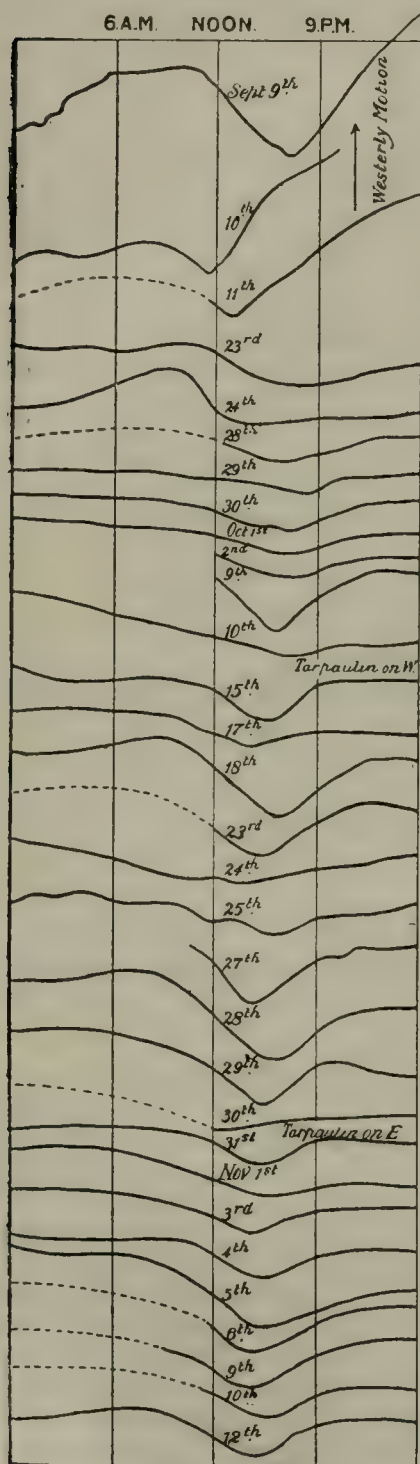 6.A.M. NOON. 9.P.M.
Sept 9th
Westerly Motion
10th
11th
23rd
24th
28th
29th
30th
Oct 1st
2nd
9th
10th
Tarpaulin on W.
15th
17th
18th
23rd
24th
25th
27th
28th
29th
30th
Tarpaulin on E
31st
Nov 1st
3rd
4th
5th
8th
9th
10th
12th